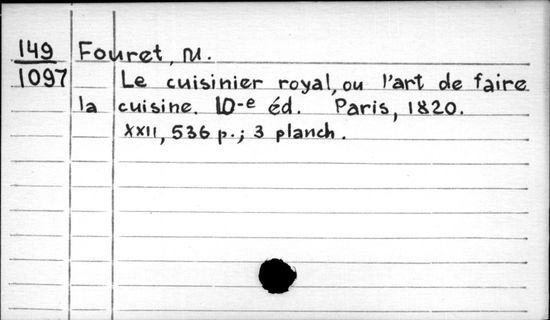 149 Fouret, M.
1097 Le cuisinier royal, ou l'art de faire
la cuisine. 10-e éd. Paris, 1820.
XXII, 536 p.; 3 planch.